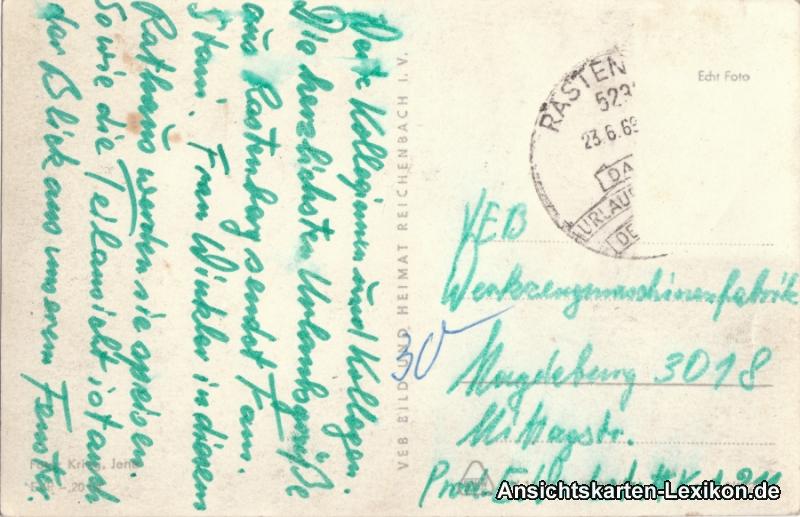 Werte Kolleginnen und Kollegen.
Die herzlichsten Urlaubsgrüße
aus Rastenberg sendet Fam.
Stani. Frau Winkler in diesem
Rathaus werden sie speisen
Sowie die Teilansicht ist auch
der Blick aus unserem Fenster.
VEB BILD UND HEIMAT REICHENBACH I. V.
Echt Foto
RASTEN
523
23.6.69
DA
URLAU
DE
VEB
Werkzeugmaschinenfabrik
30
Magdeburg 3018
Mittagstr.
Foto: Krieg, Jena
Ansichtskarten-Lexikon.de